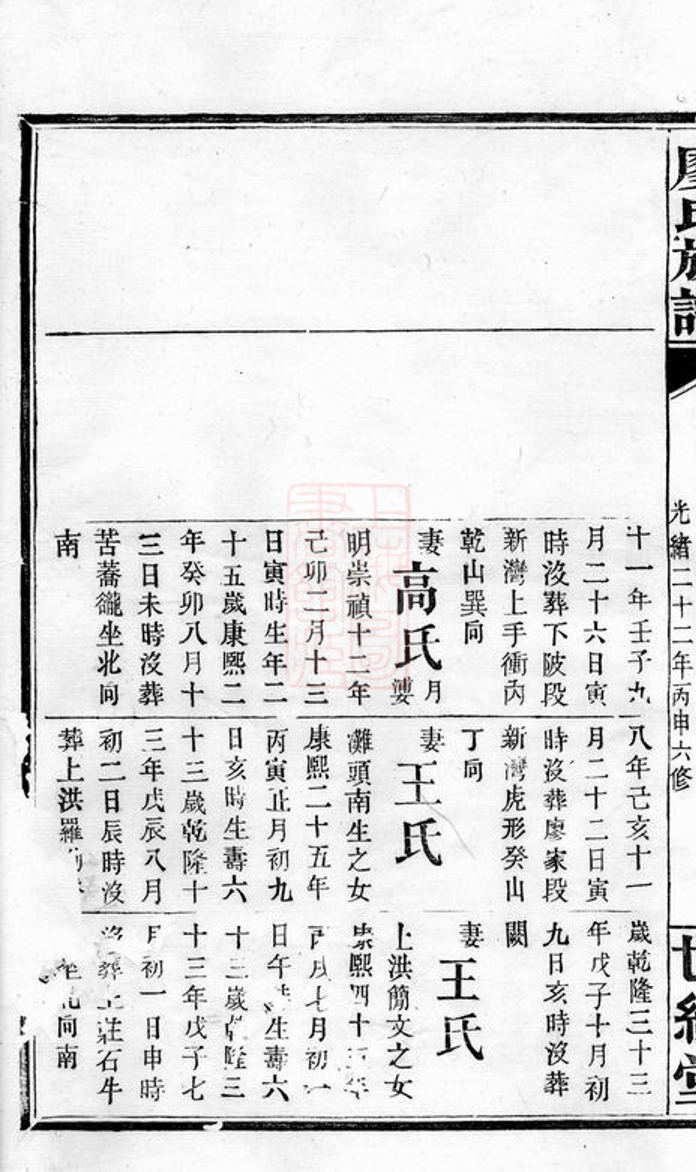 廖氏族譜
光緒二十二年丙申六修
世綵堂
十一年壬子九
月二十六日寅
時沒葬下陂段
新灣上手衝內
乾山巽向
妻高氏月
婆
明崇禎十二年
己卯二月十三
日寅時生年二
十五歲康熙二
年癸卯八月十
三日未時沒葬
苦蕎 坐北向
南
八年己亥十一
月二十二日寅
時沒葬廖家段
新灣虎形癸山
丁向
妻王氏
灘頭南生之女
康熙二十五年
丙寅正月初九
日亥時生壽六
十三歲乾隆十
三年戊辰八月
初二日辰時沒
葬上洪羅
歲乾隆三十三
年戊子十月初
九日亥時沒葬
闕
妻王氏
上洪簡文之女
康熙四十五年
丙戌七月初一
日午時生壽六
十三歲乾隆三
十三年戊子七
月初一日申時
沒葬上莊石牛
坐北向南